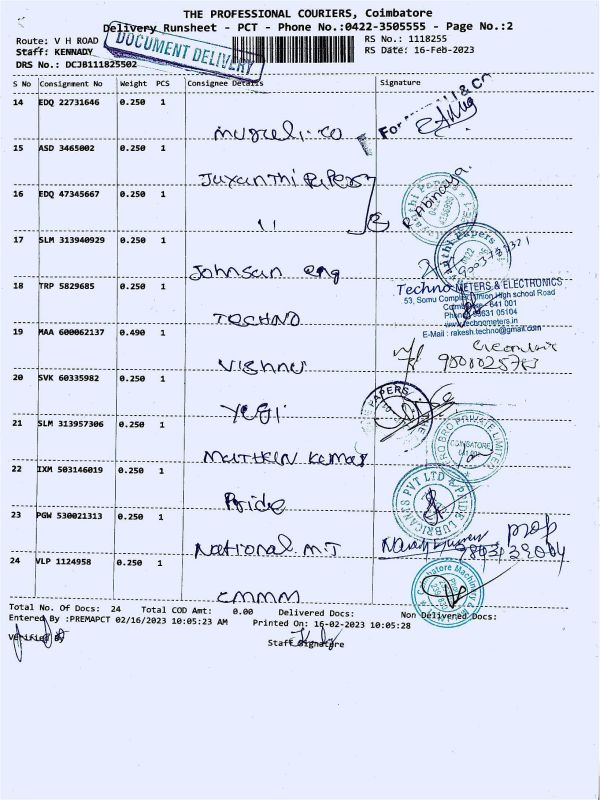 THE PROFESSIONAL COURIERS, Coimbatore
Delivery Runsheet - PCT - Phone No.:0422-3505555 - Page No.:2
Route: V H ROAD
RS No.: 1118255
Staff: KENNADY
RS Date: 16-Feb-2023
DRS No.: DCJB111825502
DOCUMENT DELIVERY
S No Consignment No Weight PCS Consignee Details Signature
14 EDQ 22731646 0.250 1
For & CO
15 ASD 3465002 0.250 1
Jayanthi Papers
16 EDQ 47345667 0.250 1
11
P. Abinaya.
17 SLM 313940929 0.250 1
Johnson eng
18 TRP 5829685 0.250 1
TECHNO
Techno METERS & ELECTRONICS
53, Somu Complex, Union High school Road
641 001
www.technometers.in
E-Mail : rakesh.techno@gmail.com
19 MAA 600062137 0.490 1
Vishnu
20 SVK 60335982 0.250 1
Yugi
PAPERS
21 SLM 313957306 0.250 1
Maithen Kumar
BRO PRIVATE LIMITED
COIMBATORE
22 IXM 503146019 0.250 1
Pride
PVT LTD
PRIDE LUBRICANTS
23 PGW 530021313 0.250 1
National MT
prop
24 VLP 1124958 0.250 1
CMMM
Coimbatore Machinery
Total No. Of Docs: 24 Total COD Amt: 0.00 Delivered Docs: Non Delivered Docs:
Entered By :PREMAPCT 02/16/2023 10:05:23 AM Printed On: 16-02-2023 10:05:28
Verified By
Staff Signature